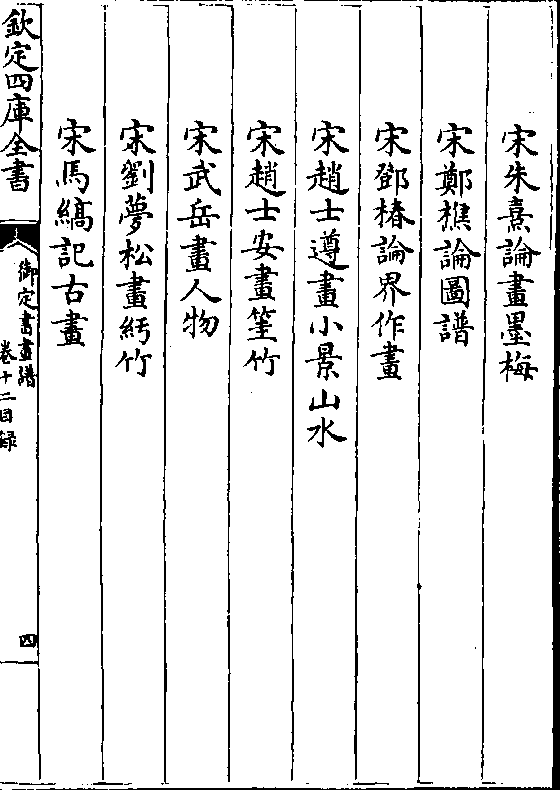 宋朱熹論畫墨梅
宋鄭樵論圖譜
宋鄧椿論界作畫
宋趙士遵畫小景山水
宋趙士安畫筀竹
宋武岳畫人物
宋劉夢松畫紆竹
宋馬縞記古畫
欽定四庫全書
御定書畫譜
卷十二目録
四